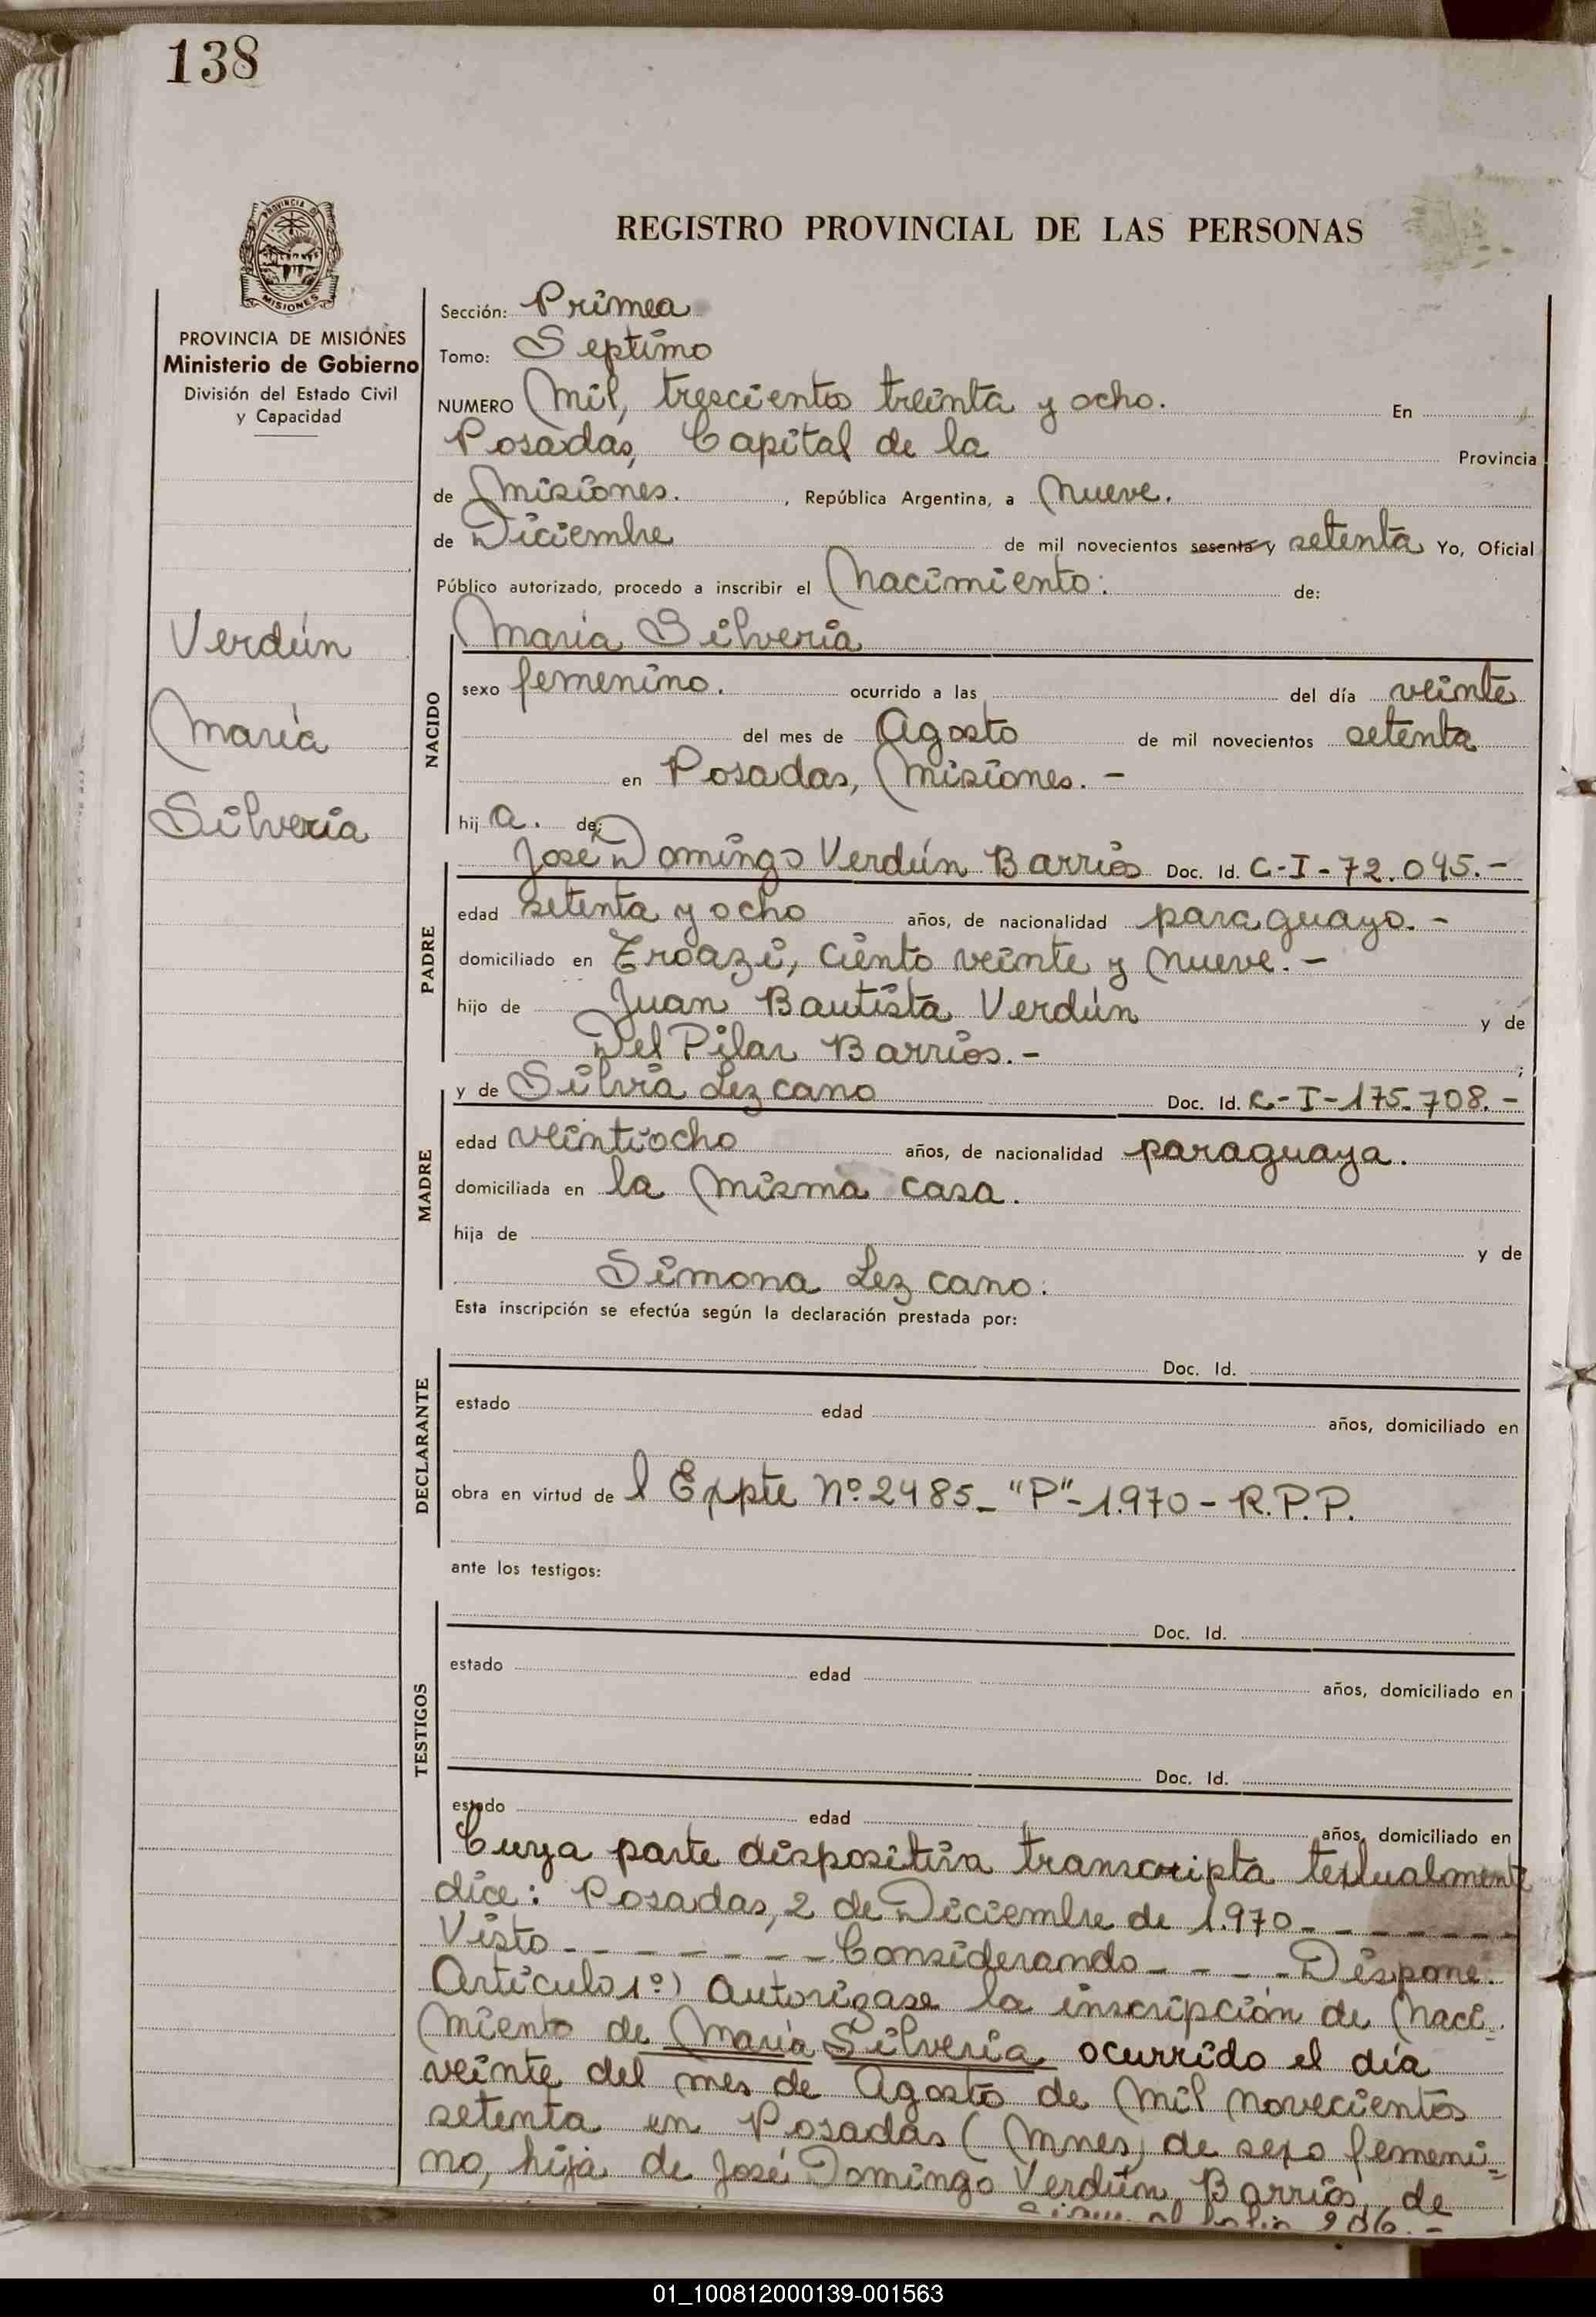 138
PROVINCIA DE
MISIONES
REGISTRO PROVINCIAL DE LAS PERSONAS
PROVINCIA DE MISIONES
Ministerio de Gobierno
División del Estado Civil
y Capacidad
Verdún
María
Silveria
Sección: Primea
Tomo: Septimo
NUMERO Mil, tresciento treinta y ocho. En
Posadas, Capital de la Provincia
de Misiones. , República Argentina, a Nueve.
de Diciembre de mil novecientos sesenta y setenta Yo, Oficial
Público autorizado, procedo a inscribir el Nacimiento: de:
María Silveria
NACIDO
sexo femenino. ocurrido a las del día veinte
del mes de Agosto de mil novecientos setenta
en Posadas, Misiones. -
hij a. de:
José Domingo Verdún Barrios Doc. Id. C-I-72.095.-
PADRE
edad setenta y ocho años, de nacionalidad paraguayo. -
domiciliado en Eroazi, ciento veinte y nueve. -
hijo de Juan Bautista Verdún y de
Del Pilar Barrios. - ;
y de Silvia Lezcano Doc. Id. C-I-175.708.-
MADRE
edad veintiocho años, de nacionalidad paraguaya.
domiciliada en la misma casa.
hija de y de
Simona Lezcano.
Esta inscripción se efectúa según la declaración prestada por:
Doc. Id.
DECLARANTE
estado edad años, domiciliado en
obra en virtud de l Expte Nº 2485_ "P"-1.970-R.P.P.
ante los testigos:
Doc. Id.
TESTIGOS
estado edad años, domiciliado en
Doc. Id.
estado edad años, domiciliado en
Cuya parte dispositiva transcripta textualmente
dice: Posadas, 2 de Diciembre de 1.970 - - - - - -
Visto - - - - - - - Considerando - - - - Dispone.
Artículo 1º) Autorizase la inscripción de Naci-
miento de María Silveria ocurrido el día
veinte del mes de Agosto de Mil Novecientos
setenta en Posadas (Mnes) de sexo femeni=
no, hija de José Domingo Verdún Barrios, de
al folio 206.-
01_100812000139-001563